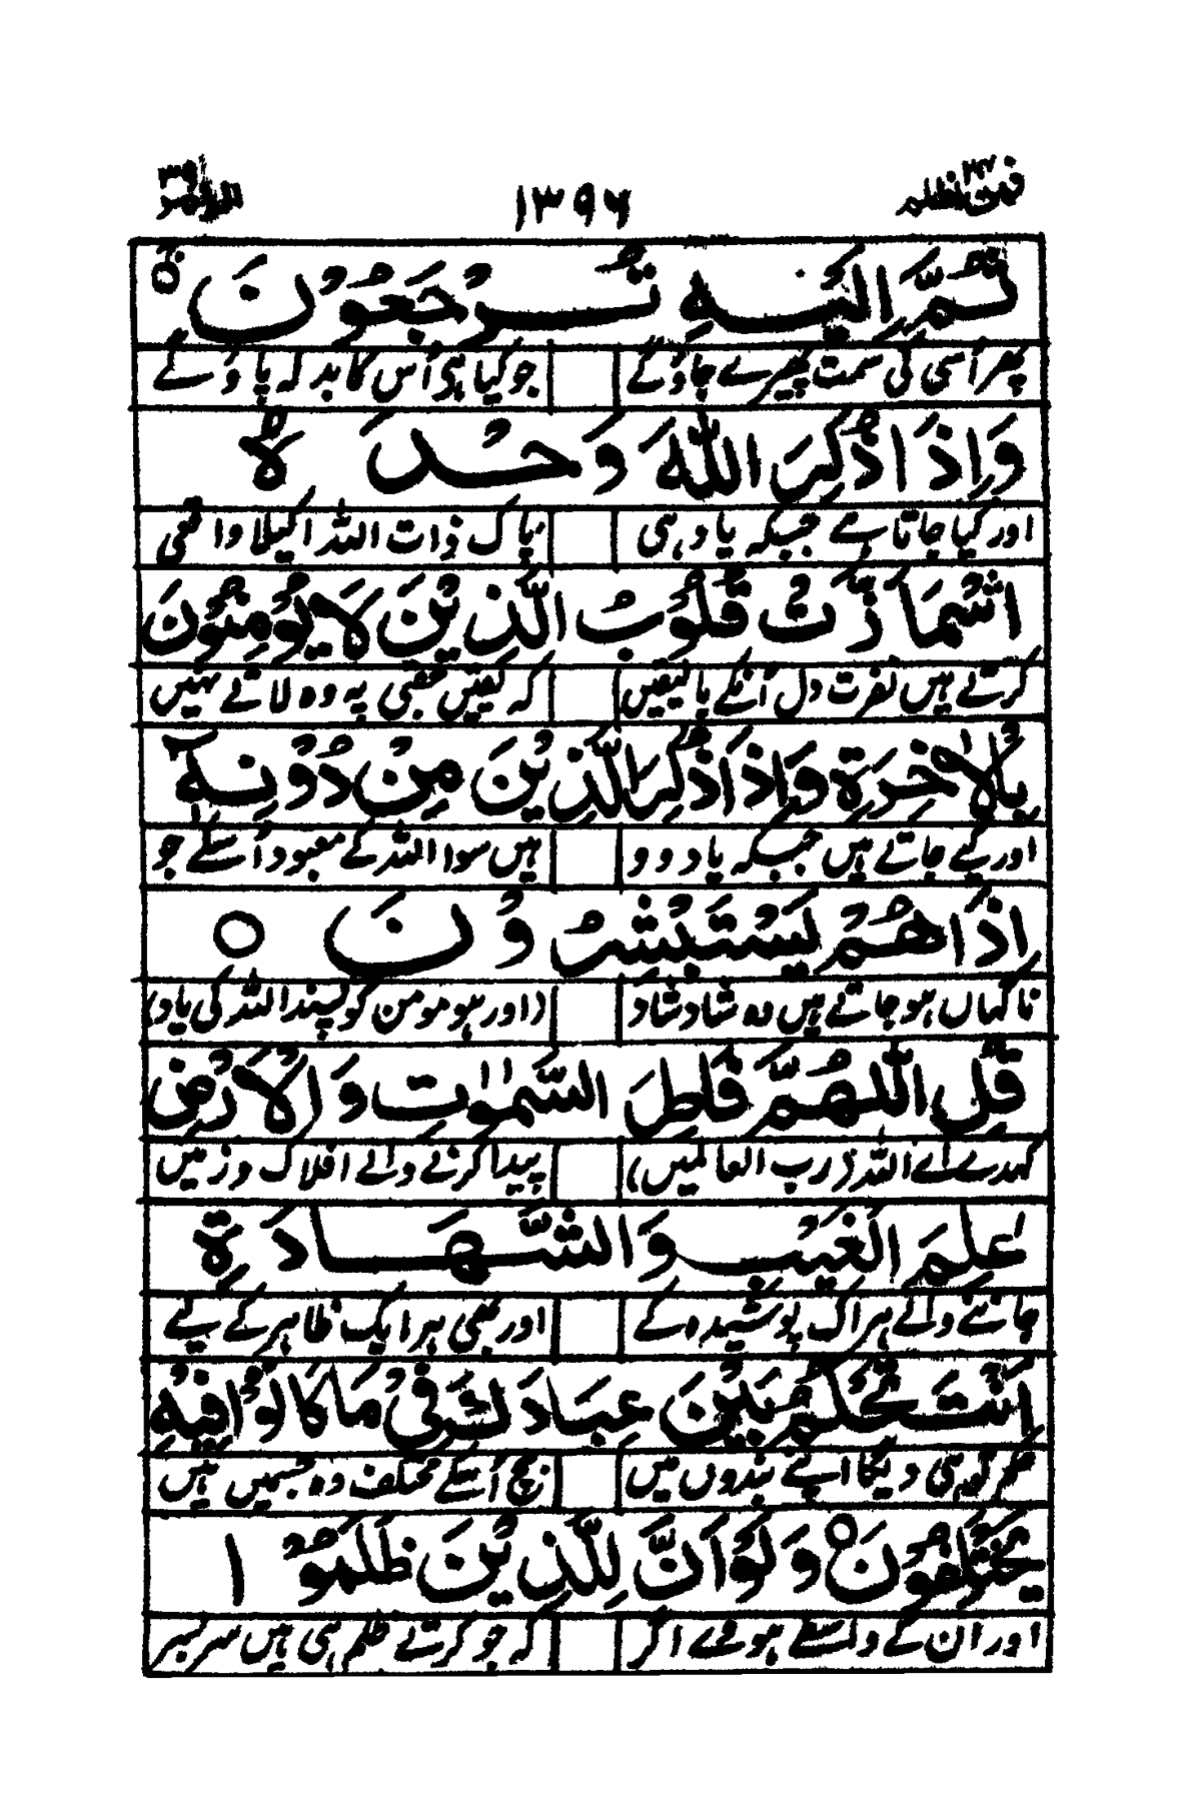 فمن اظلم ۲۴ ۱۳۹۶ الزمر ۳۹
ثُمَّ اِلَیْهِ تُرْجَعُوْنَ ۝
پھر اُسی کی سمت پھیرے جاؤ گے جو کیا ہی اُس کا بدلہ پاؤ گے
وَاِذَا ذُکِرَ اللّٰهُ وَحْدَهُ
اور کیا جاتا ہے جبکہ یاد ہی پاک ذات اللہ اکیلا واقعی
اشْمَاَزَّتْ قُلُوْبُ الَّذِیْنَ لَا یُؤْمِنُوْنَ
کرتے ہیں نفرت دل اُنکے بالیقیں کہ یقیں عقبی پہ وہ لاتے نہیں
بِالْاٰخِرَةِ وَاِذَا ذُکِرَ الَّذِیْنَ مِنْ دُوْنِهٖ
اور کیے جاتے ہیں جبکہ یاد وو ہیں سوا اللہ کے معبود اُسکے جو
اِذَا هُمْ یَسْتَبْشِرُوْنَ ۝
ناگہاں ہو جاتے ہیں وہ شاد شاد (اور ہو مومن کو پسند اللہ کی یاد)
قُلِ اللّٰهُمَّ فَاطِرَ السَّمٰوٰتِ وَالْاَرْضِ
کہدے اے اللہ (رب العالمیں) پیدا کرنے والے افلاک و زمیں
عٰلِمَ الْغَیْبِ وَالشَّهَادَةِ
جاننے والے ہر اک پوشیدہ کے اور بھی ہر ایک ظاہر کے لیے
اَنْتَ تَحْکُمُ بَیْنَ عِبَادِكَ فِیْ مَا کَانُوْا فِیْهِ
حکم تو ہی دیگا اپنے بندوں میں بیچ اُسکے مختلف وہ جسمیں ہیں
یَخْتَلِفُوْنَ ۝ وَلَوْ اَنَّ لِلَّذِیْنَ ظَلَمُوْا
اور ان کے واسطے ہووے اگر کہ جو کرتے ظلم ہی ہیں سربسر